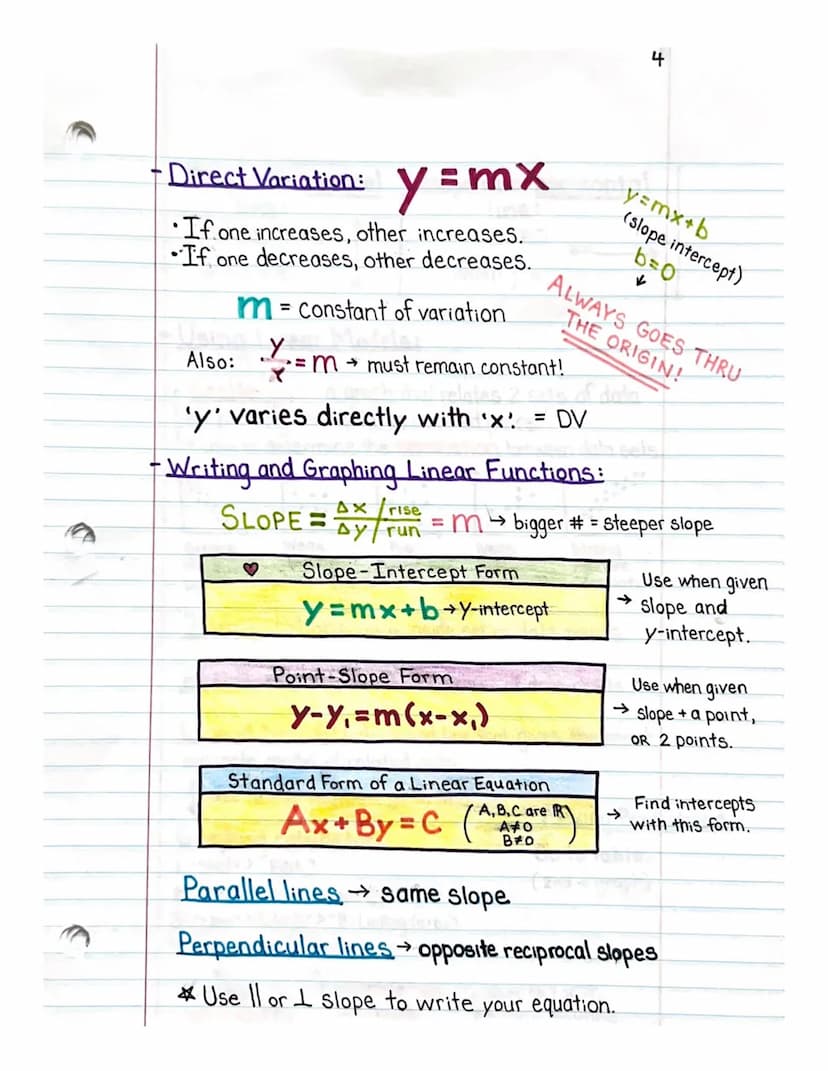 4
- Direct Variation: y = mx
• If one increases, other increases.
• If one decreases, other decreases.
y=mx+b
(slope intercept)
b=0
↙
ALWAYS GOES THRU
THE ORIGIN!
m = constant of variation
Also: y/x = m → must remain constant!
'y' varies directly with 'x'. = DV
- Writing and Graphing Linear Functions:
SLOPE = Δx/Δy / rise/run = m ↪ bigger # = steeper slope
♥ Slope-Intercept Form
y=mx+b → y-intercept
→ Use when given
slope and
y-intercept.
Point-Slope Form
y-y₁=m(x-x₁)
→ Use when given
slope + a point,
OR 2 points.
Standard Form of a Linear Equation
Ax+By=C (A,B,C are ℝ
A≠0
B≠0)
→ Find intercepts
with this form.
Parallel lines → same slope
Perpendicular lines → opposite reciprocal slopes
* Use || or ⊥ slope to write your equation.